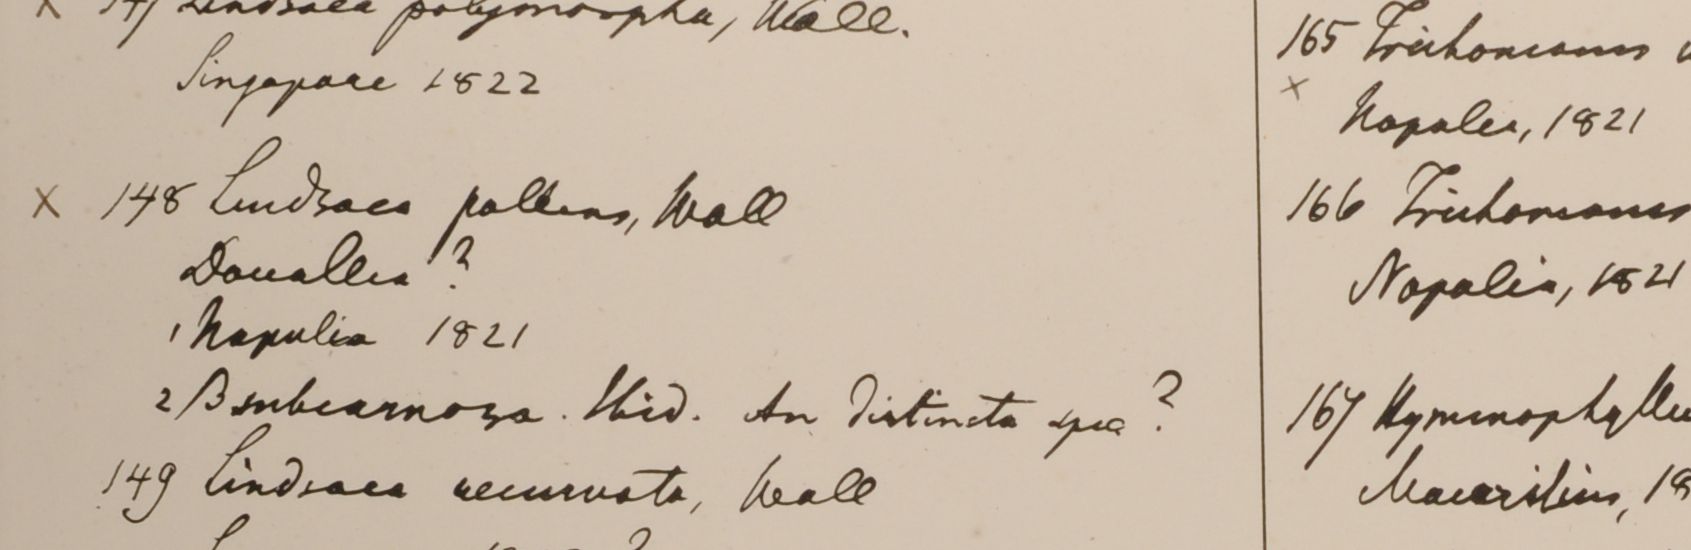 147 Lindsaea polymorpha, Wall.
Singapore 1822
X 148 Lindsaea pallens, Wall
Davallia?
1 Napalia 1821
2 β subcarnosa. Ibid. An distincta spec?
149 Lindsaea recurvata, Wall
165 Trichomanes
x
Napalia, 1821
166 Trichomanes
Napalia, 1821
167 Hymenophyllu
Mauritius, 18